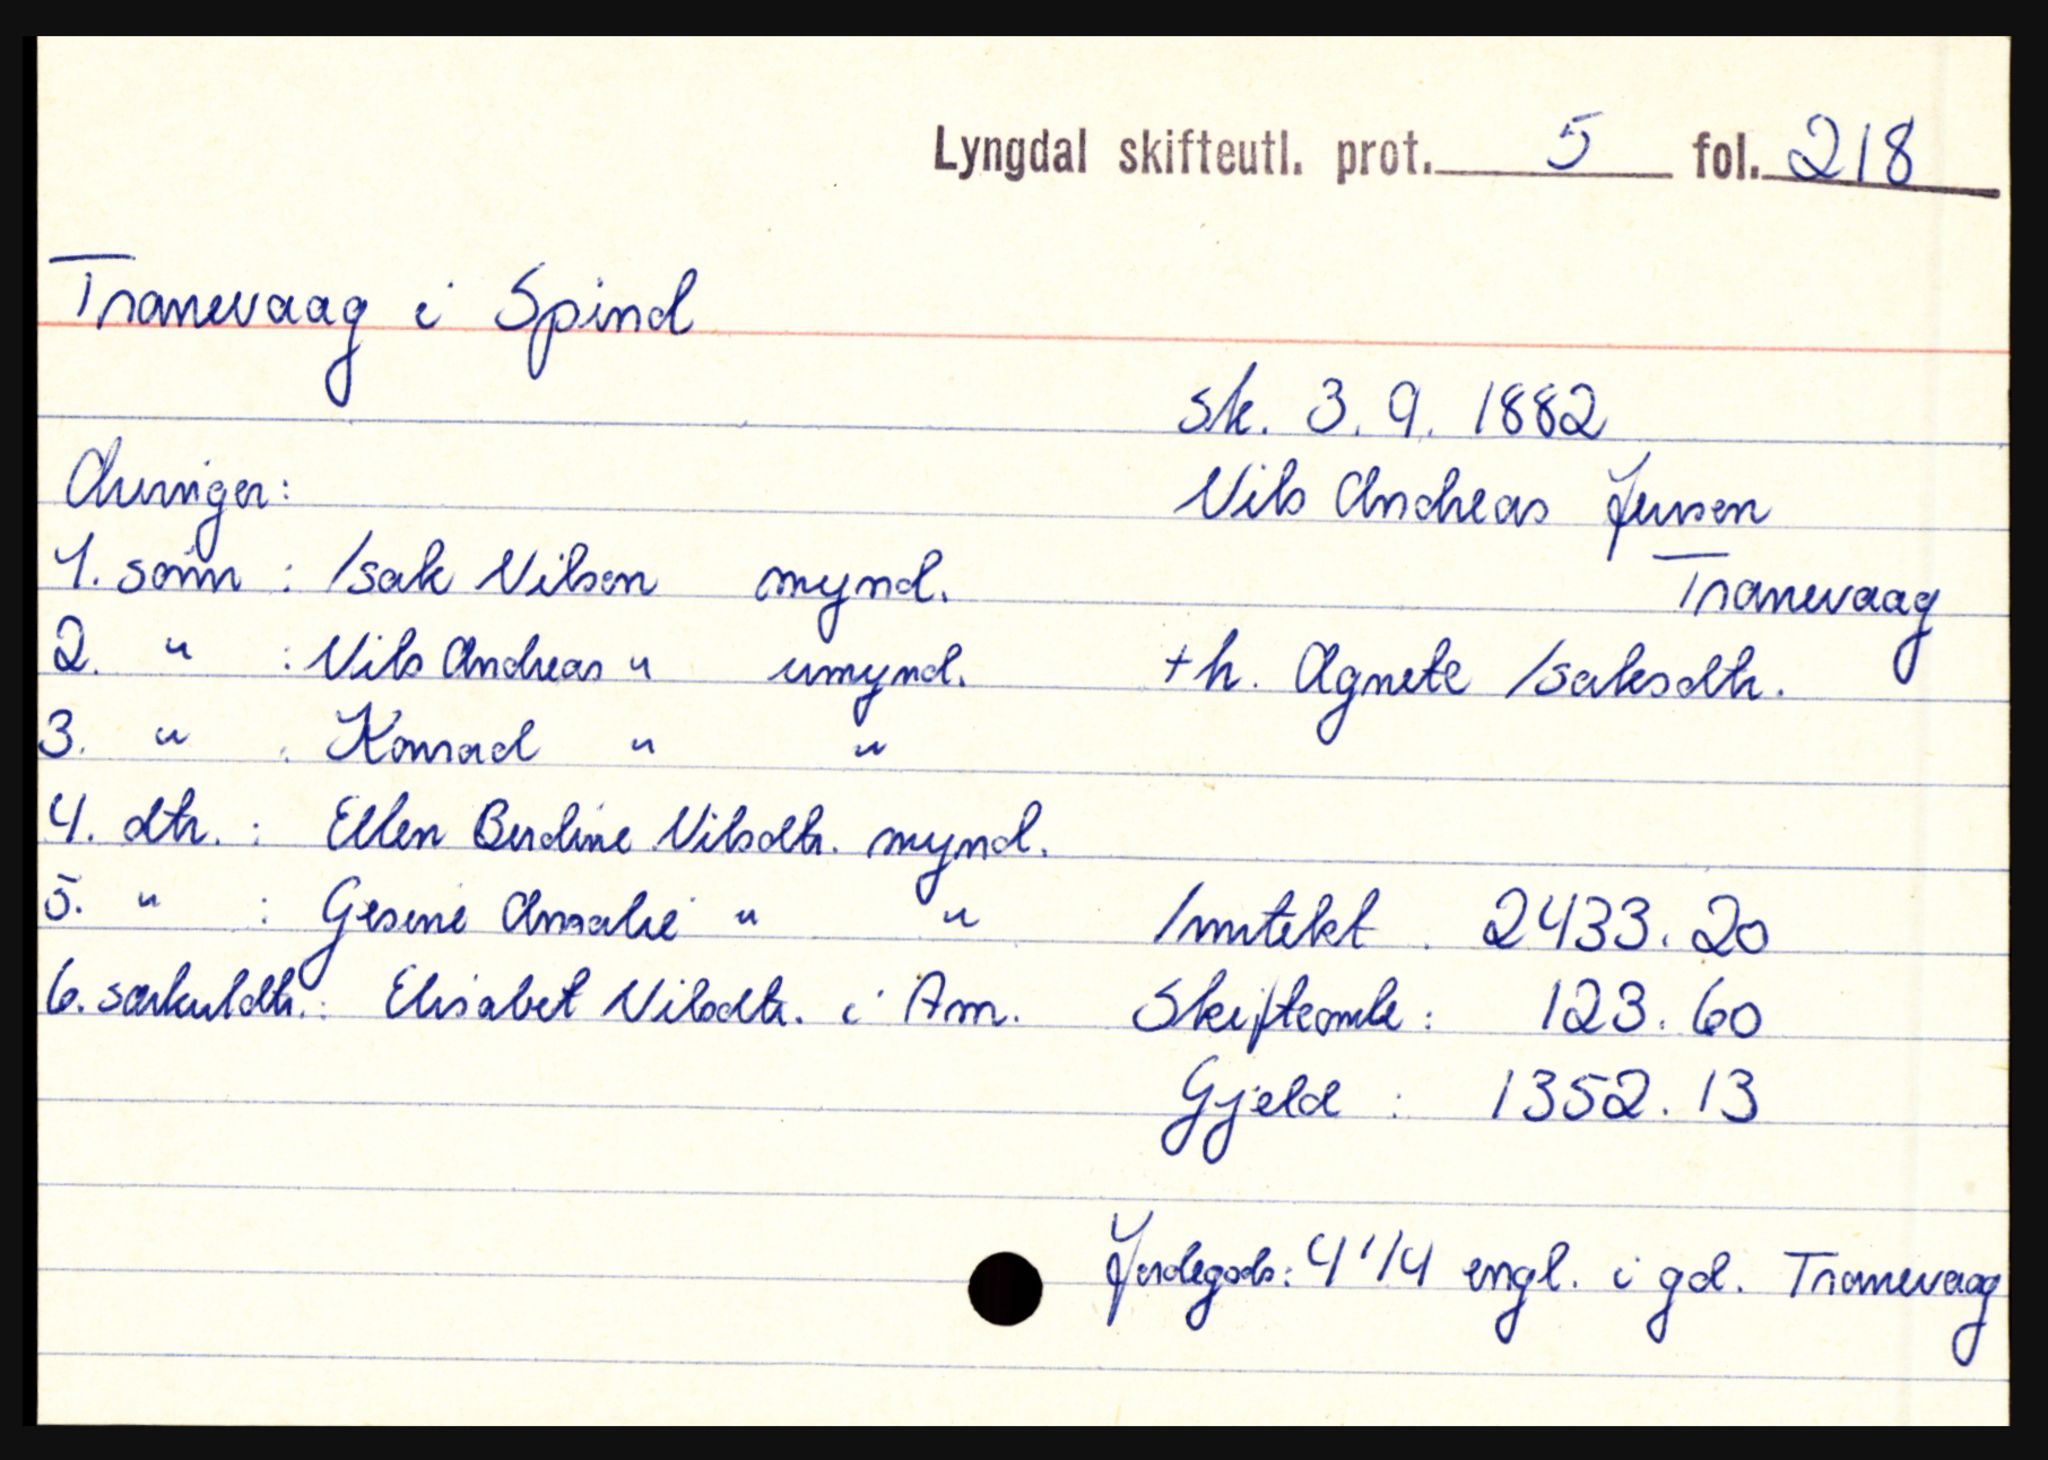 Lyngdal skifteutl. prot. 5 fol. 218
Tranevaag i Spind
sk. 3. 9. 1882
Arvinger:
Nils Andreas Jensen
Tranevaag
1. sønn : Isak Nilsen mynd.
2. " : Nils Andreas " umynd.
+ h. Agnete Isaksdtr.
3. " : Konrad " "
4. dtr. : Ellen Berdine Nilsdtr. mynd.
5. " : Gesine Amalie " "
Inntekt : 2433.20
6. særkuldtr. : Elisabet Nilsdtr. i Am.
Skifteomk : 123.60
Gjeld : 1352.13
Jordegods: 4 1/4 engl. i gd. Tranevaag